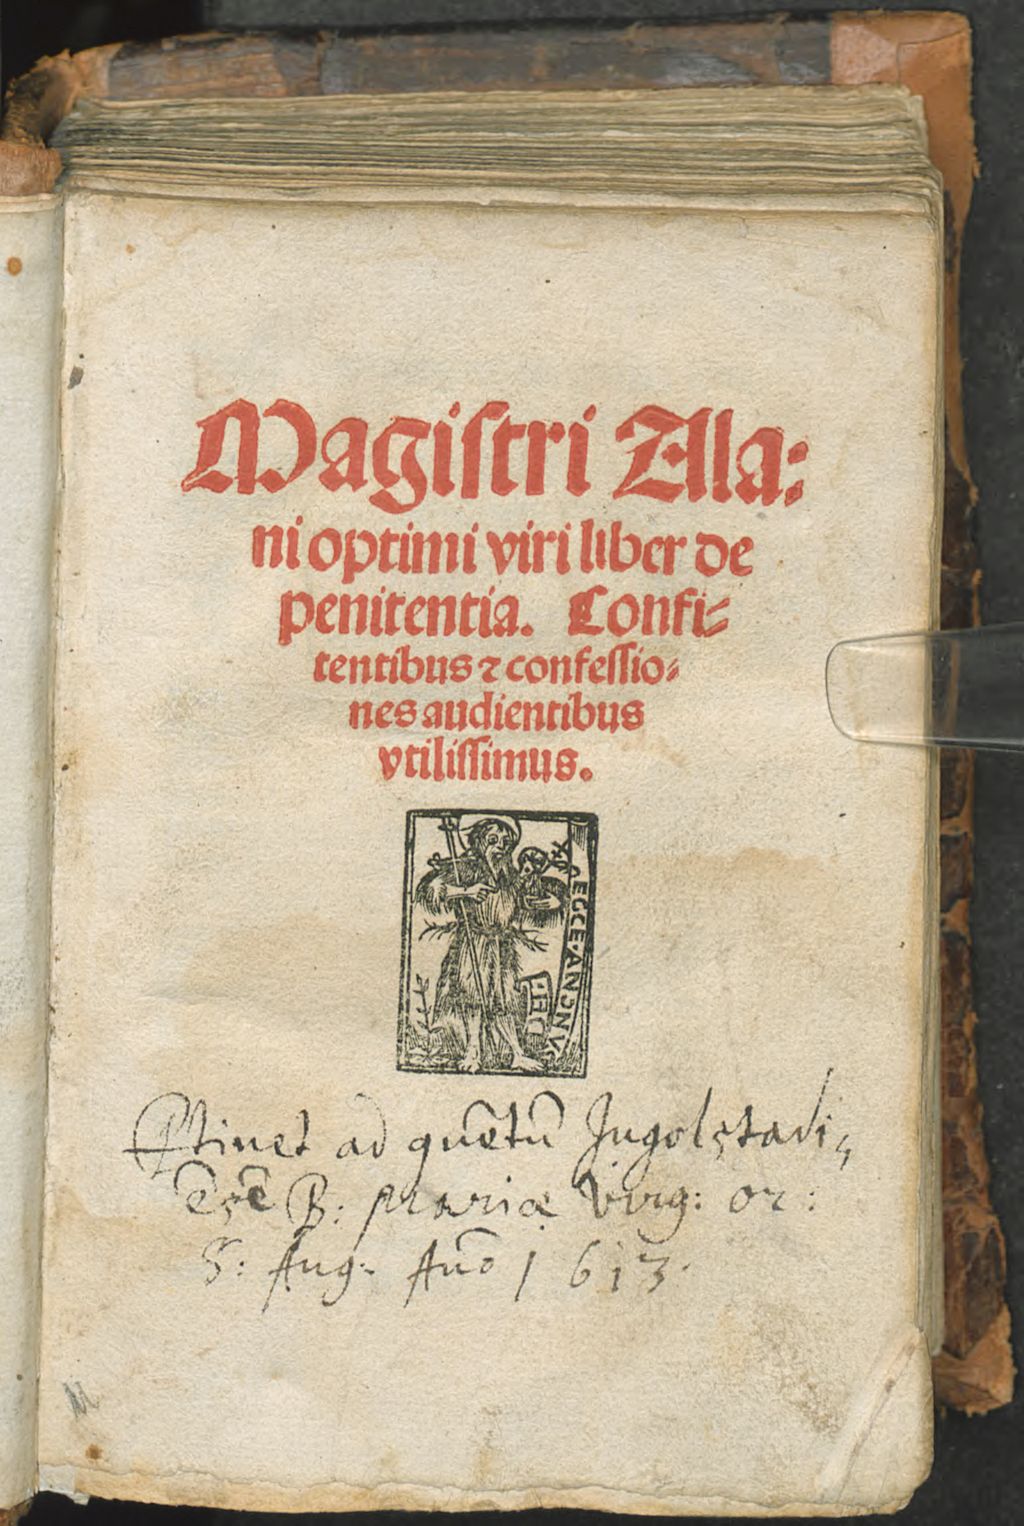 Magiſtri Ala:
ni optimi viri liber de
penitentia. Confi⸗
tentibus ⁊ confeſſio⸗
nes audientibus
vtiliſſimus.
ECCE·ANGNVS
DEI
Ptinet ad
Ingolstadi⸗
B: Mariæ Virg: or:
S: Aug: Año 1613.